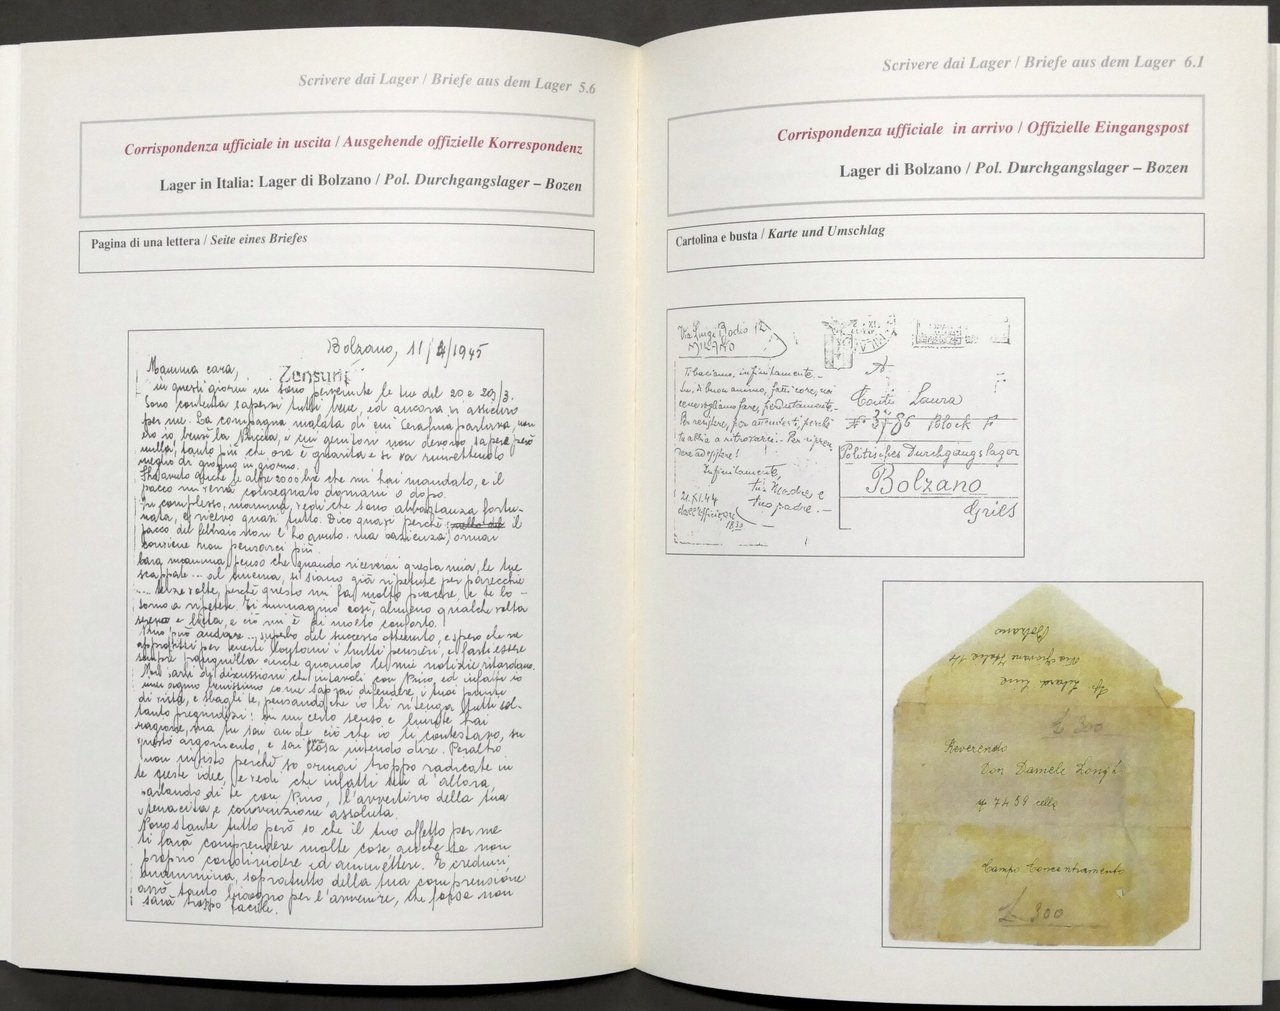 Scrivere dai Lager / Briefe aus dem Lager 5.6
Corrispondenza ufficiale in uscita / Ausgehende offizielle Korrespondenz
Lager in Italia: Lager di Bolzano / Pol. Durchgangslager – Bozen
Pagina di una lettera / Seite eines Briefes
Bolzano, 11/4/1945
Mamma cara,
Zensuriert
in questi giorni mi sono pervenute le tue del 20 e 29/3.
Sono contenta sapervi tutti bene, ed ancora vi assicuro
per me. La compagna malata di cui Cerafina parlava, non
ero io, bensì la, i cui genitori non devono sapere però
nulla, tanto più che ora è guarita e si va rimettendo
meglio di giorno in giorno.
Ho avuto anche le altre 2000 lire che mi hai mandato, e il
pacco mi verrà consegnato domani o dopo.
In complesso, mamma, vedi che sono abbastanza fortu-
nata, e ricevo quasi tutto. Dico quasi perchè il
pacco del febbraio non l'ho avuto. Ma pazienza, ormai
conviene non pensarci più.
Cara mamma, penso che quando riceverai questa mia, le tue
scappate... al cinema si siano già ripetute per parecchie
.... terze volte, perchè questo mi fa molto piacere, e te lo
torno a ripetere. Ti immagino così, almeno qualche volta
serena e lieta, e ciò mi è di molto conforto.
Nino può andare... superbo del successo ottenuto, e spero che ne
approfitti per tenerti lontani i brutti pensieri, e farti essere
sempre tranquilla anche quando le mie notizie ritardano.
di discussione che intavoli con Nino, ed infatti io
sogno benissimo come saprai difendere i tuoi punti
di vista, e sbagli te, pensando che io li ritenga tutti sol-
tanto pregiudizi: in un certo senso e limite hai
ragione, ma tu sai anche ciò che io ti contestavo, su
questo argomento, e sai cosa intendo dire. Peraltro
non insisto perchè so ormai troppo radicate in
te queste idee, e vedi che infatti sin d'allora,
parlando di te con Nino, l'avvertivo della tua
tenacità e convinzione assoluta.
Nonostante tutto però so che il tuo affetto per me
ti farà comprendere molte cose anche se non
proprio condividere ed ammettere. E credimi,
mammina, sopratutto della tua comprensione
avrò tanto bisogno per l'avvenire, che forse non
sarà troppo facile.
Scrivere dai Lager / Briefe aus dem Lager 6.1
Corrispondenza ufficiale in arrivo / Offizielle Eingangspost
Lager di Bolzano / Pol. Durchgangslager – Bozen
Cartolina e busta / Karte und Umschlag
Via Luigi Bodio 12
MILANO
Ti baciamo, infinitamente.
Su, di buon animo, fatti core, noi
cene vogliamo fare, perdutamente.
Per reggere, per attenderti, perchè
tu abbia a ritrovarci. Per ripren-
Infinitamente,
tua Madre e
tuo padre.
21.XI.44
18,30
A
Conti Laura
N° 3786 Block F
Politisches Durchgangslager
Bolzano
Gries
Bolzano
Via Giovane Italia 14
Zitara Lina
£ 300
Reverendo
Don Daniele Longi
7459 celle
Campo Concentramento
£ 300